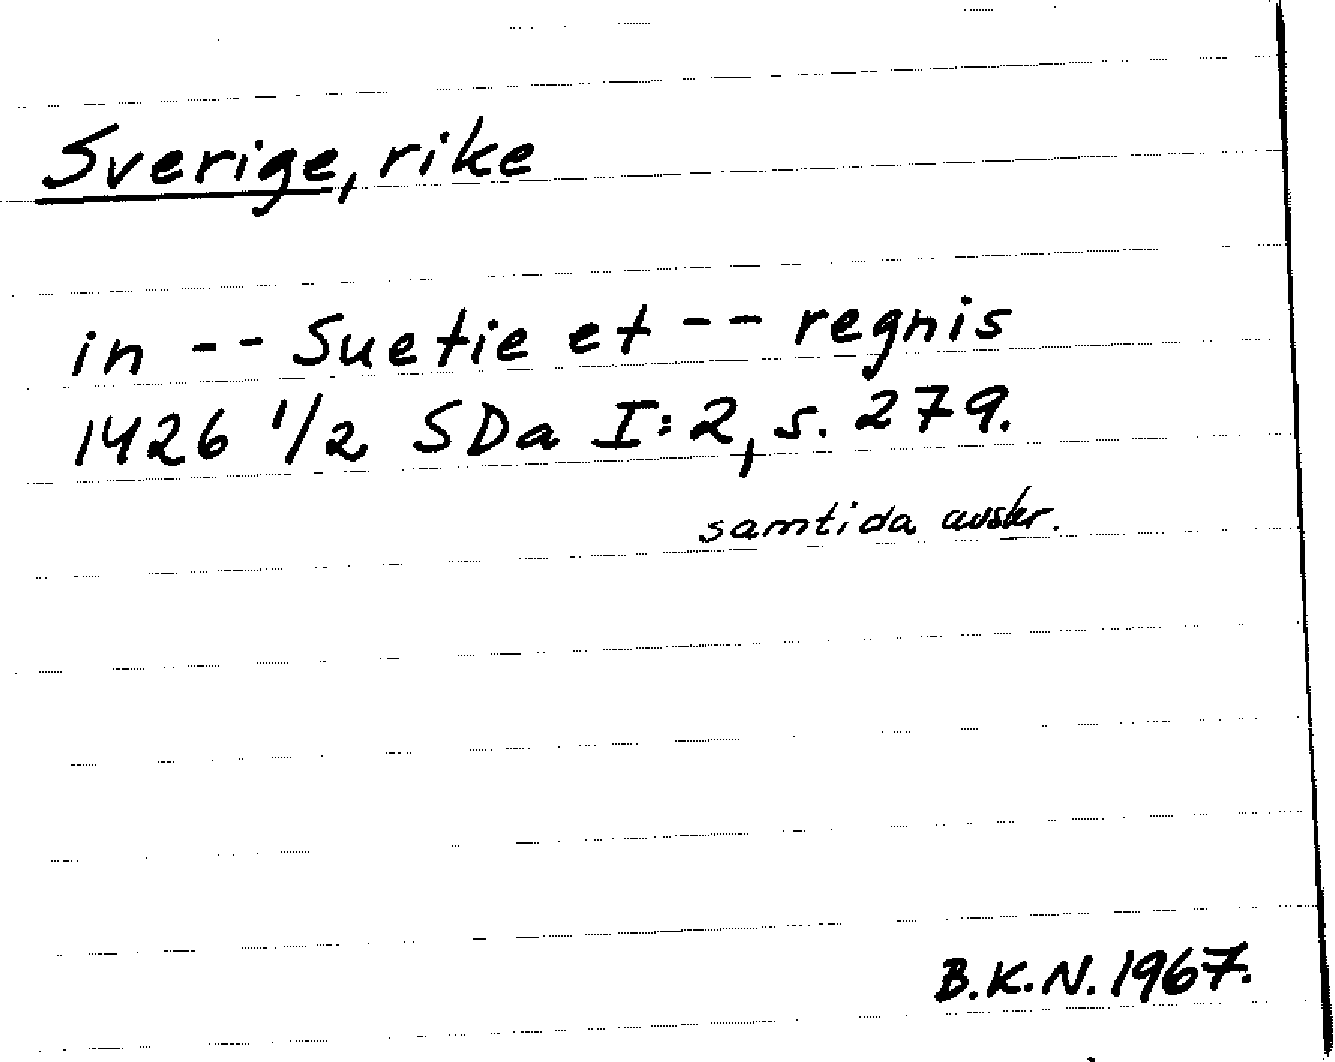 Sverige, rike
in -- Suetie et -- regnis
1426 1/2 SDa I:2, s. 279.
samtida avskr.
B.K.N. 1967.